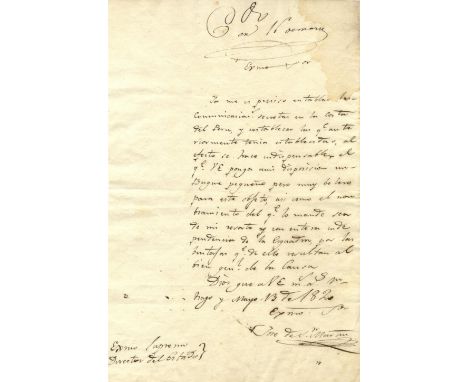 Exmo Sor
Ya me es preciso entablar las
Comunicacion.s secretas en la Costa
del Peru, y establecer las q.e ante
riormente tenia establecidas, al
efecto se hace indispensable el
q.e V.E ponga a mi disposicion un
Buque pequeño pero muy belero
para este objeto, asi como el nom
bramiento del q.e lo mande sea
de mi resorte y con entera inde
pendencia de la Esquadra por las
ventajas q.e de ello resultan al
bien gen.l de la Causa
Dios gue a V.E m.s a.s
y Mayo 13 de 1820
Exmo Sor
Jose de S.n Martin
Exmo Supremo
Director del Estado